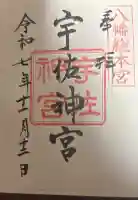 八幡總本宮
奉拝
宇佐神宮
宇佐神宮
令和七年十二月十三日